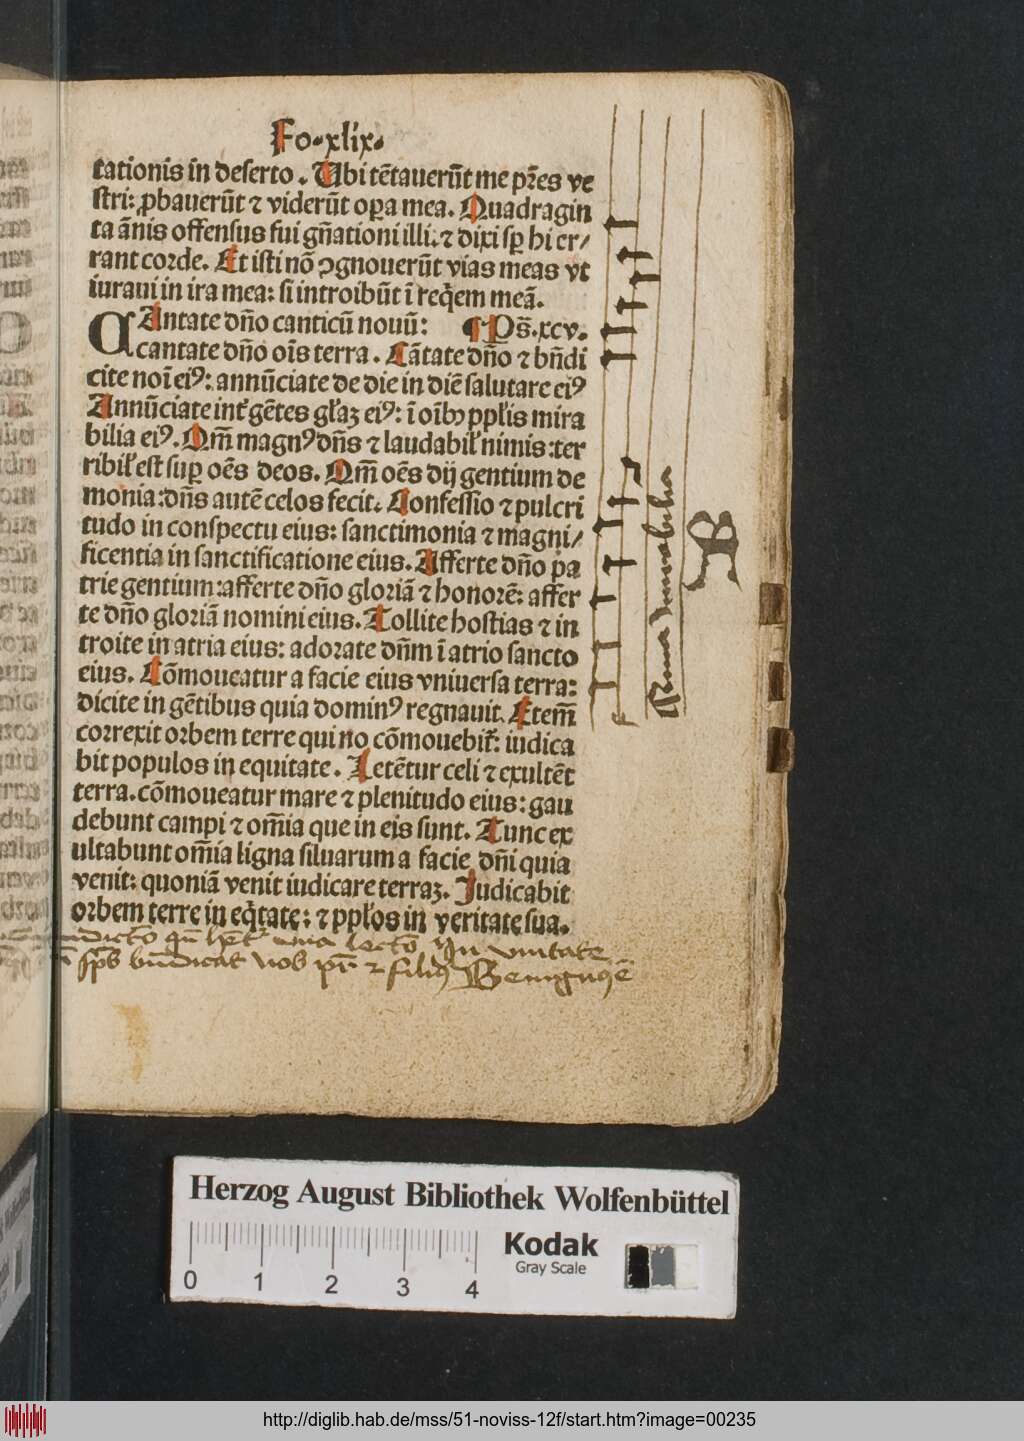 Fo.xlix.
tationis in deserto. Ubi tẽtauerũt me pr̃es ve
stri: ꝓbauerũt ⁊ viderũt oꝑa mea. Quadragin
ta ãnis offensus fui gñationi illi: ⁊ dixi sꝑ hi er/
rant corde. Et isti nõ ꝯgnouerũt vias meas vt
iuraui in ira mea: si introibũt ĩ req̃em meã.
CAntate dño canticũ nouũ: ¶ Ps̃.xcv.
cantate dño oĩs terra. Cãtate dño ⁊ bñdi
cite noĩ eiꝰ: annũciate de die in diẽ salutare eiꝰ
Annũciate int̃ gẽtes głaꝫ eiꝰ: ĩ oĩbꝫ ppłis mira
bilia eiꝰ. Qm̃ magnꝰ dñs ⁊ laudabił nimis: ter
ribił est suꝑ oẽs deos. Qm̃ oẽs dij gentium de
monia: dñs autẽ celos fecit. Confessio ⁊ pulcri
tudo in conspectu eius: sanctimonia ⁊ magni/
ficentia in sanctificatione eius. Afferte dño pa
trie gentium: afferte dño gloriã ⁊ honorẽ: affer
te dño gloriã nomini eius. Tollite hostias ⁊ in
troite in atria eius: adorate dñm ĩ atrio sancto
eius. Cõmoueatur a facie eius vniuersa terra:
dicite in gẽtibus quia dominꝰ regnauit. Etem̃
correxit orbem terre qui no cõmouebit̃: iudica
bit populos in equitate. Letẽtur celi ⁊ exultẽt
terra. cõmoueatur mare ⁊ plenitudo eius: gau
debunt campi ⁊ om̃ia que in eis sunt. Tunc ex
ultabunt om̃ia ligna siluarum a facie dñi quia
venit: quoniã venit iudicare terraꝫ. Judicabit
orbem terre in eq̃tate: ⁊ ppłos in veritate sua.
lectõ In vnitate
sp̃s bñdicat nos pr̃ ⁊ filiꝰ
mirabilia
Herzog August Bibliothek Wolfenbüttel
0 1 2 3 4
Kodak
Gray Scale
http://diglib.hab.de/mss/51-noviss-12f/start.htm?image=00235